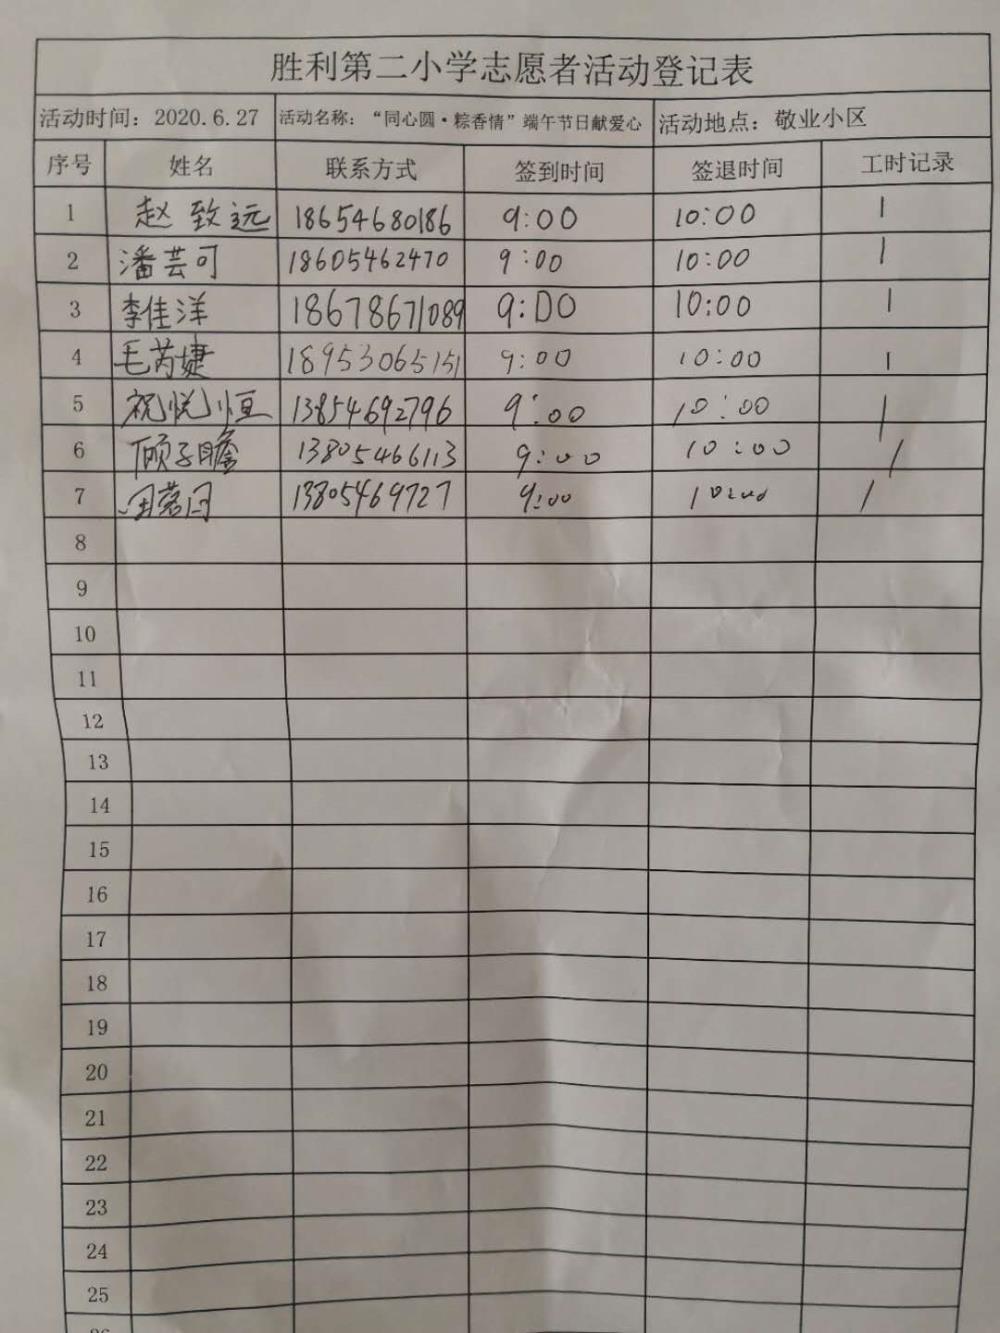 胜利第二小学志愿者活动登记表
活动时间：2020.6.27 活动名称：“同心圆·粽香情”端午节日献爱心 活动地点：敬业小区
序号 姓名 联系方式 签到时间 签退时间 工时记录
1 赵致远 18654680186 9:00 10:00 1
2 潘芸可 18605462470 9:00 10:00 1
3 李佳洋 18678671089 9:00 10:00 1
4 毛芮婕 18953065151 9:00 10:00 1
5 祝悦恒 13854692796 9:00 10:00 1
6 顾子瞻 13805466113 9:00 10:00 1
7 13805469727 9:00 10:00 1
8
9
10
11
12
13
14
15
16
17
18
19
20
21
22
23
24
25